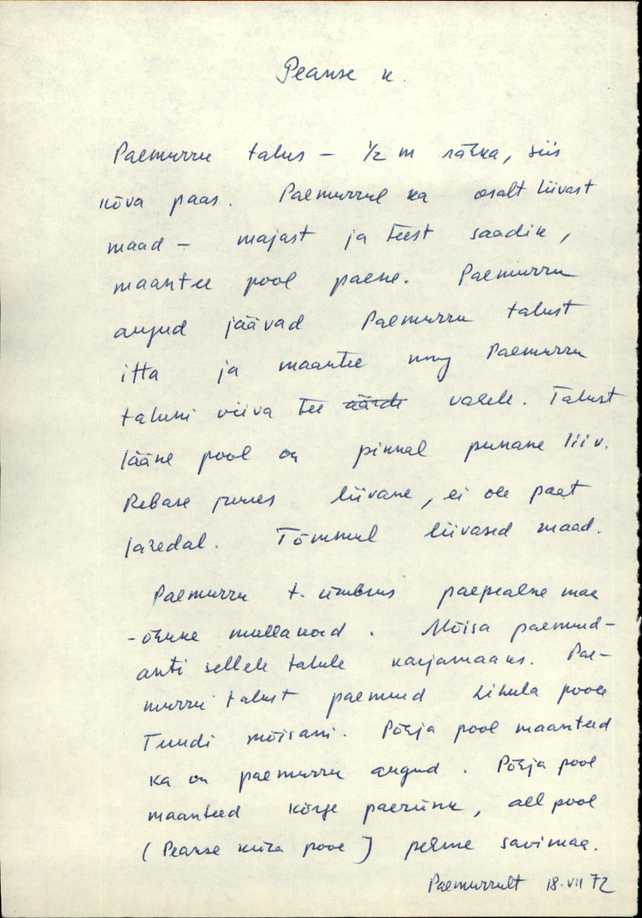 Peanse k.
Paemurru talus – 1/2 m rähka, siis
kõva paas. Paemurrul ka osalt liivast
maad – majast ja teest saadik,
maantee pool paene. Paemurru
augud jäävad Paemurru talust
itta ja maantee ning Paemurru
taluni viiva tee äärde vahele. Talust
lääne pool on pinnal punane liiv.
Rebase juures liivane, ei ole paet
lähedal. Tõmmul liivased maad.
Paemurru t. ümbrus paepealne maa
- õhuke mullakord. Mõisa paemurd-
anti sellele talule karjamaaks. Pae-
murru talust paemurd Lihula poole
Tuudi mõisani. Põhja pool maanteed
ka on paemurru augud. Põhja pool
maanteed kõrge paerünk, all pool
(Peanse küla pool) pehme savimaa.
Paemurrult 18.VII 72